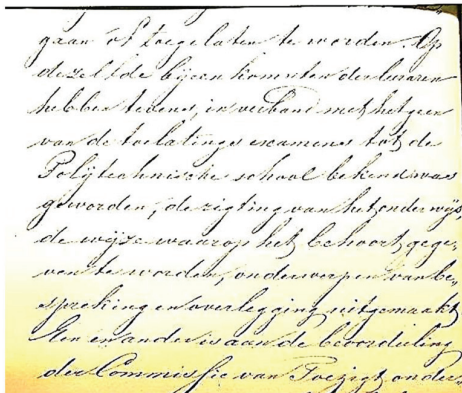 gaan of toegelaten te worden. Op
dezelfde bijeenkomsten der leraren
hebben tevens, in verband met hetgeen
van de toelatings examens tot de
Polijtechnische school bekend was
geworden, de rigting van het onderwijs,
de wijze waarop het behoort gege„
ven te worden, onderwerpen van be„
spreking en overlegging uitgemaakt
Een en ander is aan de beoordeling
der Commissie van Toezigt onder„